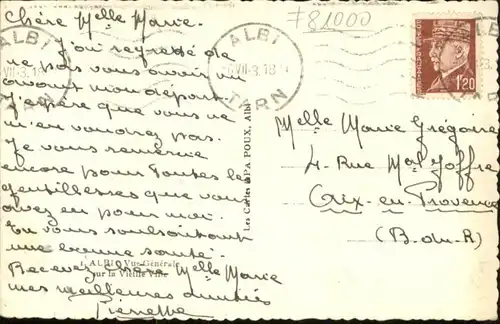 Chère Melle Marie.
J'ai regretté de
ne pas vous avoir vu
avant mon départ.
J'espère que vous ne
m'en voudrez pas.
Je vous remercie
encore pour toutes les
gentillesses que vous
avez eu pour moi.
En vous souhaitant
une bonne santé.
Recevez chère Melle Marie
mes meilleures amitiés
Pierrette
ALBI Vue Générale
sur la Vieille Ville
Les Cartes APA POUX, Albi
F81000
ALBI
TARN
ALBI
VII-3
TARN
1f20
Melle Marie Grégoire
4 Rue Mal Joffre
Aix-en-Provence
(B-du-R)